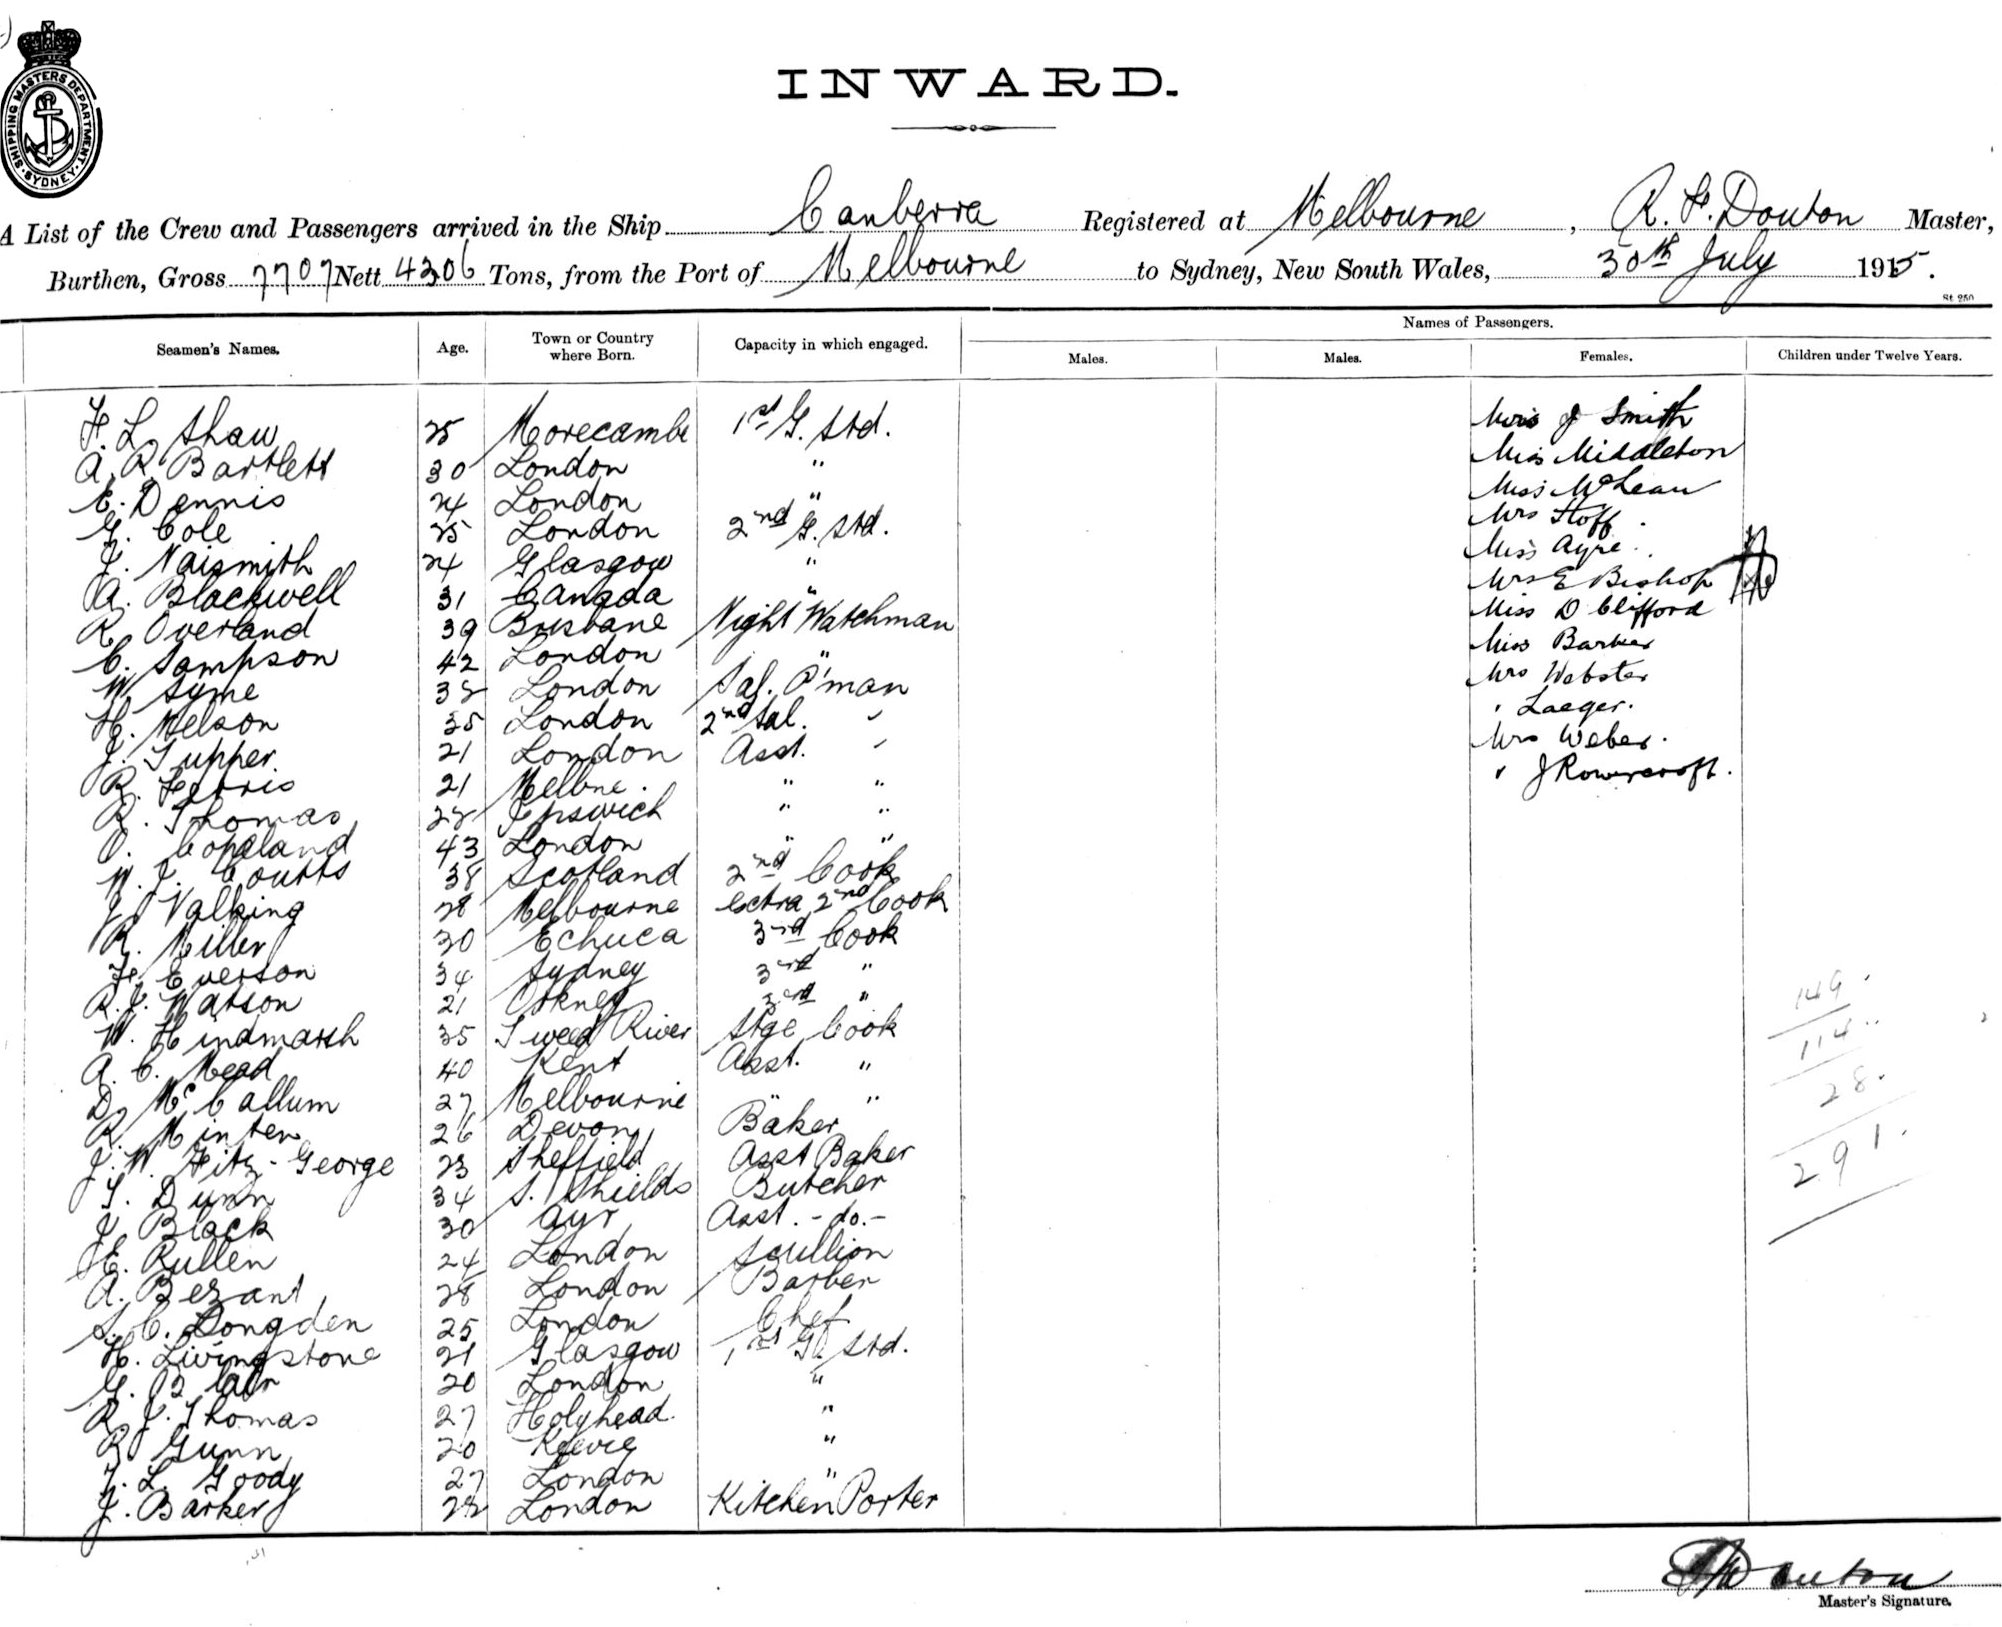 SHIPPING MASTERS DEPARTMENT. SYDNEY.
INWARD.
A List of the Crew and Passengers arrived in the Ship Canberra Registered at Melbourne, R. F. Douton Master,
Burthen, Gross 7707 Nett 4306 Tons, from the Port of Melbourne to Sydney, New South Wales, 30th July 1915.
St. 250
Names of Passengers.
Seamen's Names. Age. Town or Country where Born. Capacity in which engaged. Males. Males. Females. Children under Twelve Years.
F. L. Shaw 25 Morecambe 1st G. Std. J Smith
A. R. Bartlett 30 London " Miss Middleton
E. Dennis 24 London " Miss McLean
G. Cole 25 London 2nd G. Std. Mrs
J. Naismith 24 Glasgow " Miss Ayre
A. Blackwell 31 Canada " Mrs E Bishop
R. Overland 39 Brisbane Night Watchman Miss D Clifford
C. Sampson 42 London " Miss Barker
W. Syme 38 London Sal. P'man Mrs Webster
H. Nelson 35 London 2nd Sal. " " Laeger.
J. Tupper 21 London Asst. " Mrs Weber.
R. Ferris 21 Melbne. " " " J Rowcroft.
R. Thomas 28 Ipswich " "
O. Copeland 43 London " "
W. J. Coutts 38 Scotland 2nd Cook
J. Valking 28 Melbourne Extra 2nd Cook
R. Miller 30 Echuca 3rd Cook
F. Everson 34 Sydney 3rd "
R. J. Watson 21 Orkney 3rd "
W. Hindmarsh 35 Tweed River Stge Cook
A. C. Mead 40 Kent Asst. "
D. McCallum 27 Melbourne " "
R. Minten 26 Devon Baker
J. W. Fitz-George 23 Sheffield Asst Baker
T. Dunn 34 S. Shields Butcher
J. Black 30 Ayr Asst. -do.-
H. Rullen 24 London Scullion
A. Bezant 28 London Barber
S. C. Dongden 25 London Chef
H. Livingstone 21 Glasgow 1st G. Std.
G. Blair 20 London "
R. J. Thomas 27 Holyhead. "
R. Gunn 20 "
T. L. Goody 27 London "
J. Barker 28 London Kitchen Porter
149.
114.
28.
291.
Douton
Master's Signature.